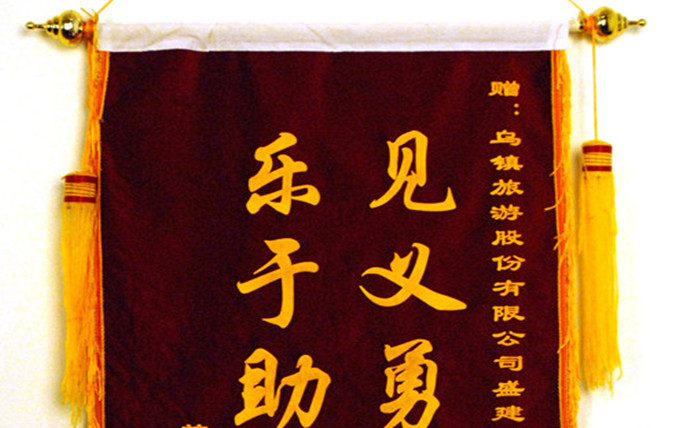 赠：乌镇旅游股份有限公司盛建
见义勇
乐于助